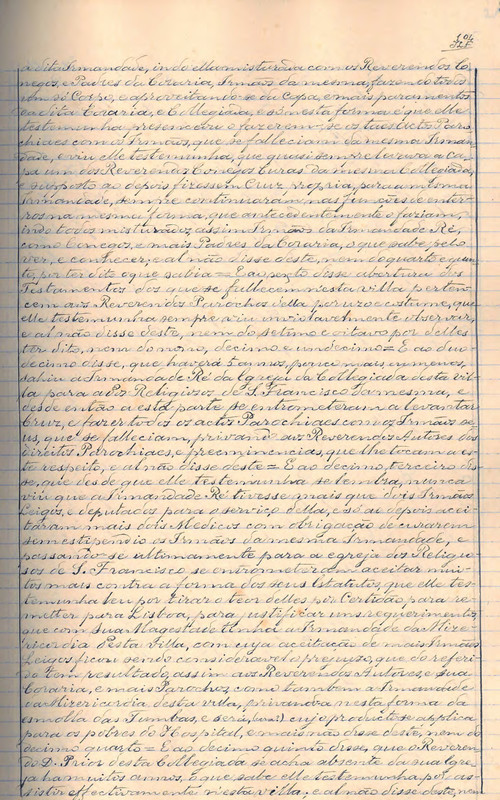 104
a dita Irmandade, indo ella misturada com os Reverendos Co-
negos, e Padres da Coraria, Irmãos da mesma, fazendo todos
um só Corpo, e aproveitando-se da Capa, e mais paramentos
da dita Coraria, e Collegiada, e só nesta forma é que elle
testemunha presenciou o fazerem-se os
com os Irmãos, que falleciam da mesma Irman-
dade, e viu elle testemunha, que quasi sempre levava a ca-
pa um dos Reverendos Conegos Curas da mesma Collegiada,
e supposto que depois fizessem Cruz propria, para a mesma
Irmandade, sempre continuaram nas funções de enter-
ros na mesma forma, que antecedentemente o faziam,
indo todos misturados, assim Irmãos da Irmandade Ré,
como Conegos, e mais Padres da Coraria, o que sabe pelo
ver, e conhecer; e al não disse deste, nem do quarto e quin-
to, por ter dito o que sabia = E ao sexto disse abertura dos
Testamentos dos que se fallecem nesta villa perten-
cem aos Reverendos Parochos della por uzo e costume, que
elle testemunha sempre viu inviolavelmente observar,
e al não disse deste, nem do setimo e oitavo por delles
ter dito, nem do nono, decimo e undecimo = E ao duo
decimo disse, que haverá annos, pouco mais ou menos,
sahiu a Irmandade Ré da Igreja da Collegiada desta vil-
la para a dos Religiosos de S. Francisco da mesma, e
desde então a esta parte se entrometeram a levantar
Cruz, e fazer todos os actos Parochiaes com os Irmãos se-
us, que se falleciam, privando aos Reverendos Autores dos
direitos Parochiaes, e preeminencias, que lhe tocam a es-
te respeito, e al não disse deste = E ao decimo terceiro dis-
se, que desde que elle testemunha se lembra, nunca
viu que a Irmandade Ré tivesse mais que dois Irmãos
Leigos, e deputados para o serviço della, e só ao depois acei-
taram mais dois Medicos com obrigação de curarem
sem estipendio os Irmãos da mesma Irmandade, e
passando-se ultimamente para a egreja dos Religio-
sos de S. Francisco se entrometeram aceitar mui-
tos mais contra a forma dos seus Estatutos, que elle tes-
temunha leu por tirar o teor delles por Certidão para re-
metter para Lisboa, para justificar uns requerimentos,
que com Sua Magestade tinha a Irmandade da Mize-
ricordia desta villa, com cuja aceitação de mais Irmãos
Leigos ficou sendo consideravel o prejuizo, que do referi-
do tem resultado, assim aos Reverendos Autores, e sua
Coraria, e mais Parochos, como tambem a Irmandade
da Mizericordia desta villa, privando-a nesta forma da
esmolla das Tumbas, e será, cujo producto se applica
para os pobres do Hospital, e mais não disse deste, nem do
decimo quarto = E ao decimo quinto disse, que o Reveren-
do D. Prior desta Collegiada se acha absente da sua Igre-
ja ha muitos annos, o que sabe elle testemunha por as-
sistir effectivamente nesta villa; e al não disse deste, nem